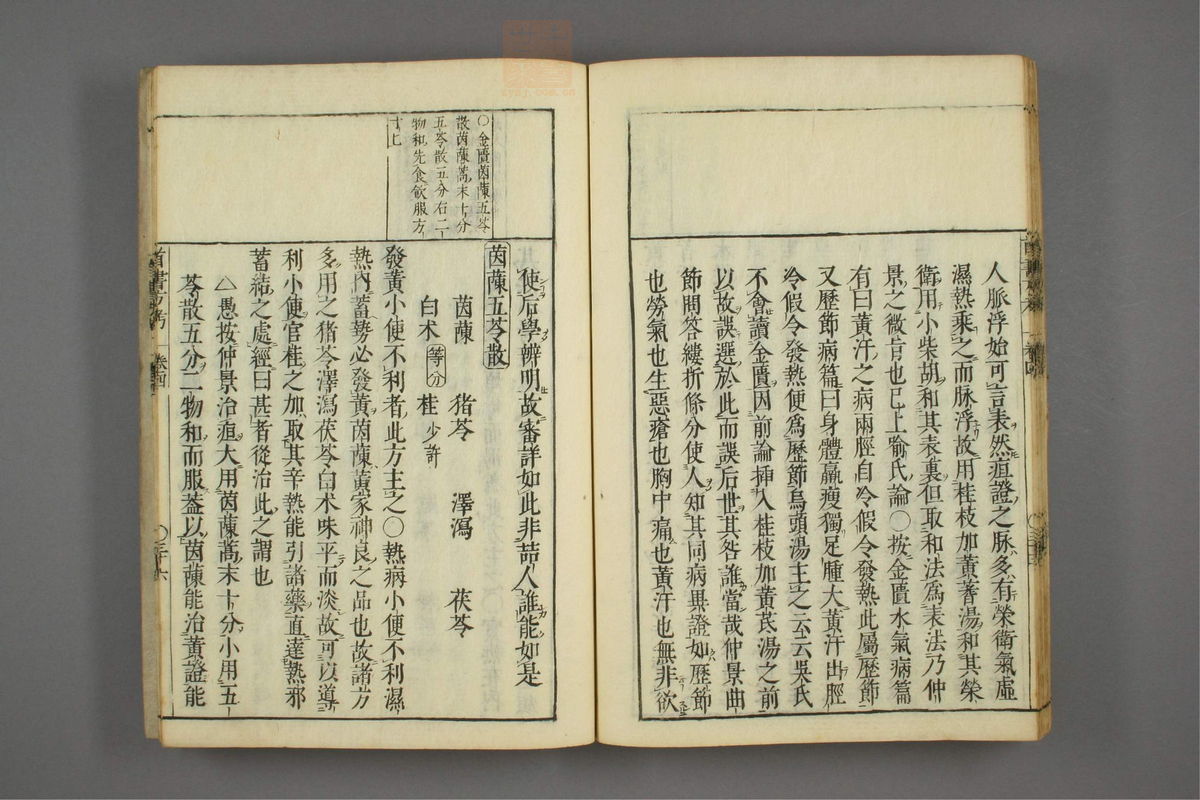 人脈浮始可言表然疸證之脈多有榮衛氣虛
濕熱乘之而脈浮故用桂枝加黃蓍湯和其榮
衛用小柴胡和其表裏但取和法為表法乃仲
景之微旨也已上喻氏論〇按金匱水氣病篇
有曰黃汗之病兩脛自冷假令發熱此屬歷節
又歷節病篇曰身體羸瘦獨足腫大黃汗出脛
冷假令發熱便為歷節烏頭湯主之云云吳氏
不會讀金匱因前論挿入桂枝加黃芪湯之前
以故誤選於此而誤后世其咎誰當哉仲景曲
節問答縷折條分使人知其同病異證如歷節
也勞氣也生惡瘡也胸中痛也黃汗也無非欲
〇金匱茵蔯五苓
散茵蔯蒿末十分
五苓散五分右二
物和先食飲服方
寸匕
使后學辨明故審詳如此非喆人誰能如是
茵蔯五苓散
茵蔯 猪苓 澤瀉 茯苓
白术 等分 桂 少許
發黃小便不利者此方主之〇熱病小便不利濕
熱內蓄勢必發黃茵蔯黃家神良之品也故諸方
多用之猪苓澤瀉茯苓白术味平而淡故可以導
利小便官桂之加取其辛熱能引諸藥直達熱邪
蓄結之處經曰甚者從治此之謂也
△愚按仲景治疸大用茵蔯蒿末十分小用五
苓散五分二物和而服葢以茵蔯能治黃證能
首書方考 卷四 〇三十六